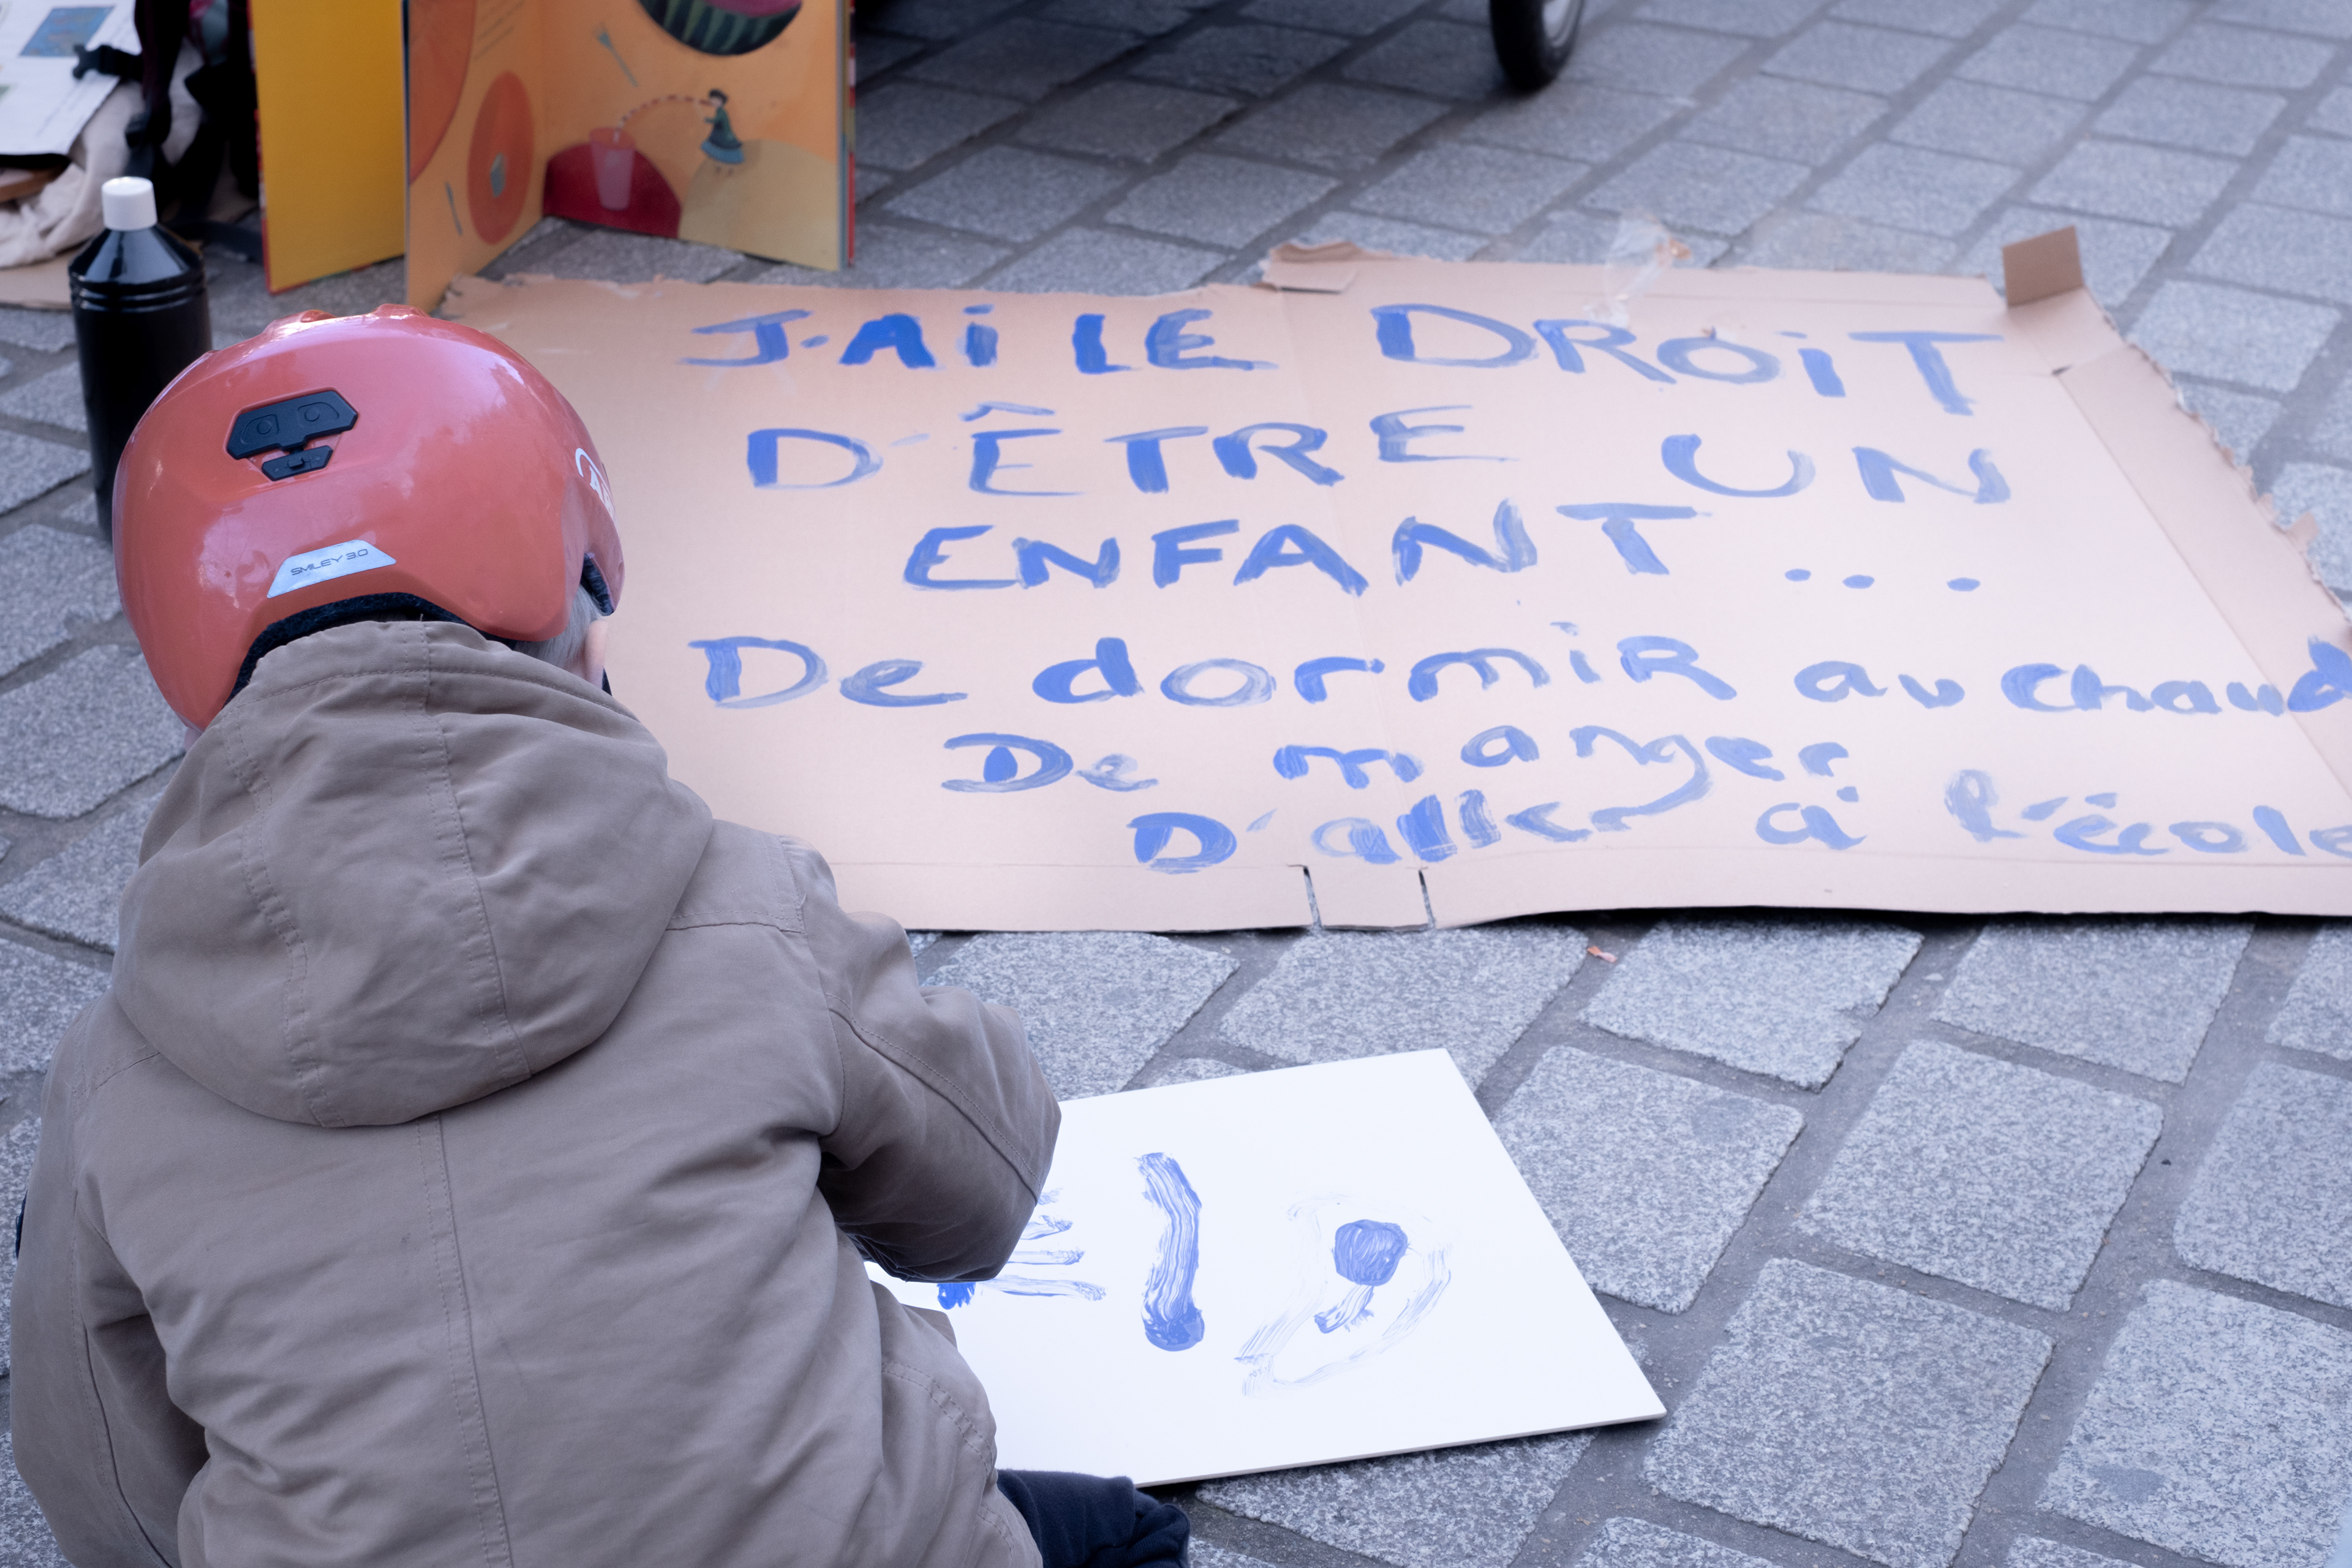 J'AI LE DROIT
D'ÊTRE UN
ENFANT...
De dormiR au chaud
De manger
D'aller à l'école
SMILEY 3.0